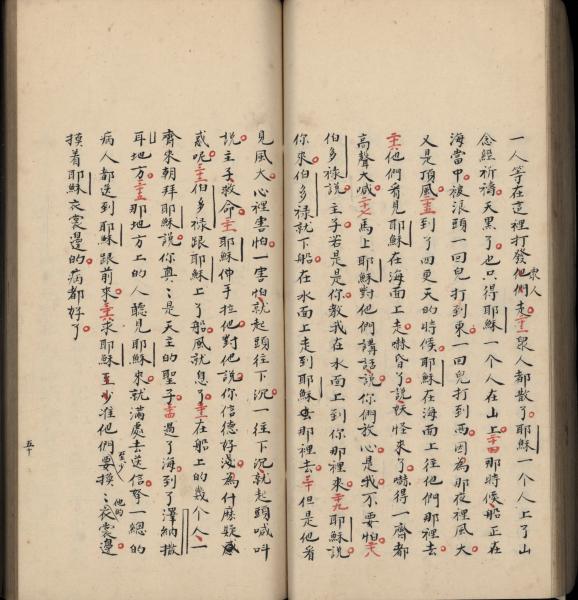 一人等在這裡打發他們走二十三衆人都散了耶穌一個人上了山
衆人
念經祈禱天黑了也只得耶穌一個人在山上二十四那時候船正在
海當中被浪頭一回兒打到東一回兒打到西因為那夜裡風大
又是頂風二十五到了四更天的時候耶穌在海面上徃他們那裡去
二十六他們看見耶穌在海面上走嚇昏了說妖怪來了嚇得一齊都
高聲大喊二十七馬上耶穌對他們講話說你們放心是我不要怕二十八
伯多祿說主子若是是你教我在水面上到你那裡來二十九耶穌說
你來伯多祿就下船在水面上走到耶穌那裡去三十但是他看
見風大心裡害怕一害怕就起頭往下沉一往下沉就起頭喊呌
說主子救命三十一耶穌伸手拉他對他說你信德好淺為什麽疑惑
惑呢三十二伯多祿跟耶穌上了船風就息了三十三在船上的幾个人一
齊來朝拜耶穌說你真真是天主的聖子三十四過了海到了澤納撒
耳地方三十五那地方上的人聽見耶穌來就滿處去送信拏一總的
病人都送到耶穌跟前來三十六求耶穌至少准他們要摸摸衣裳邊
至少
他的
摸着耶穌衣裳邊的病都好了
五十